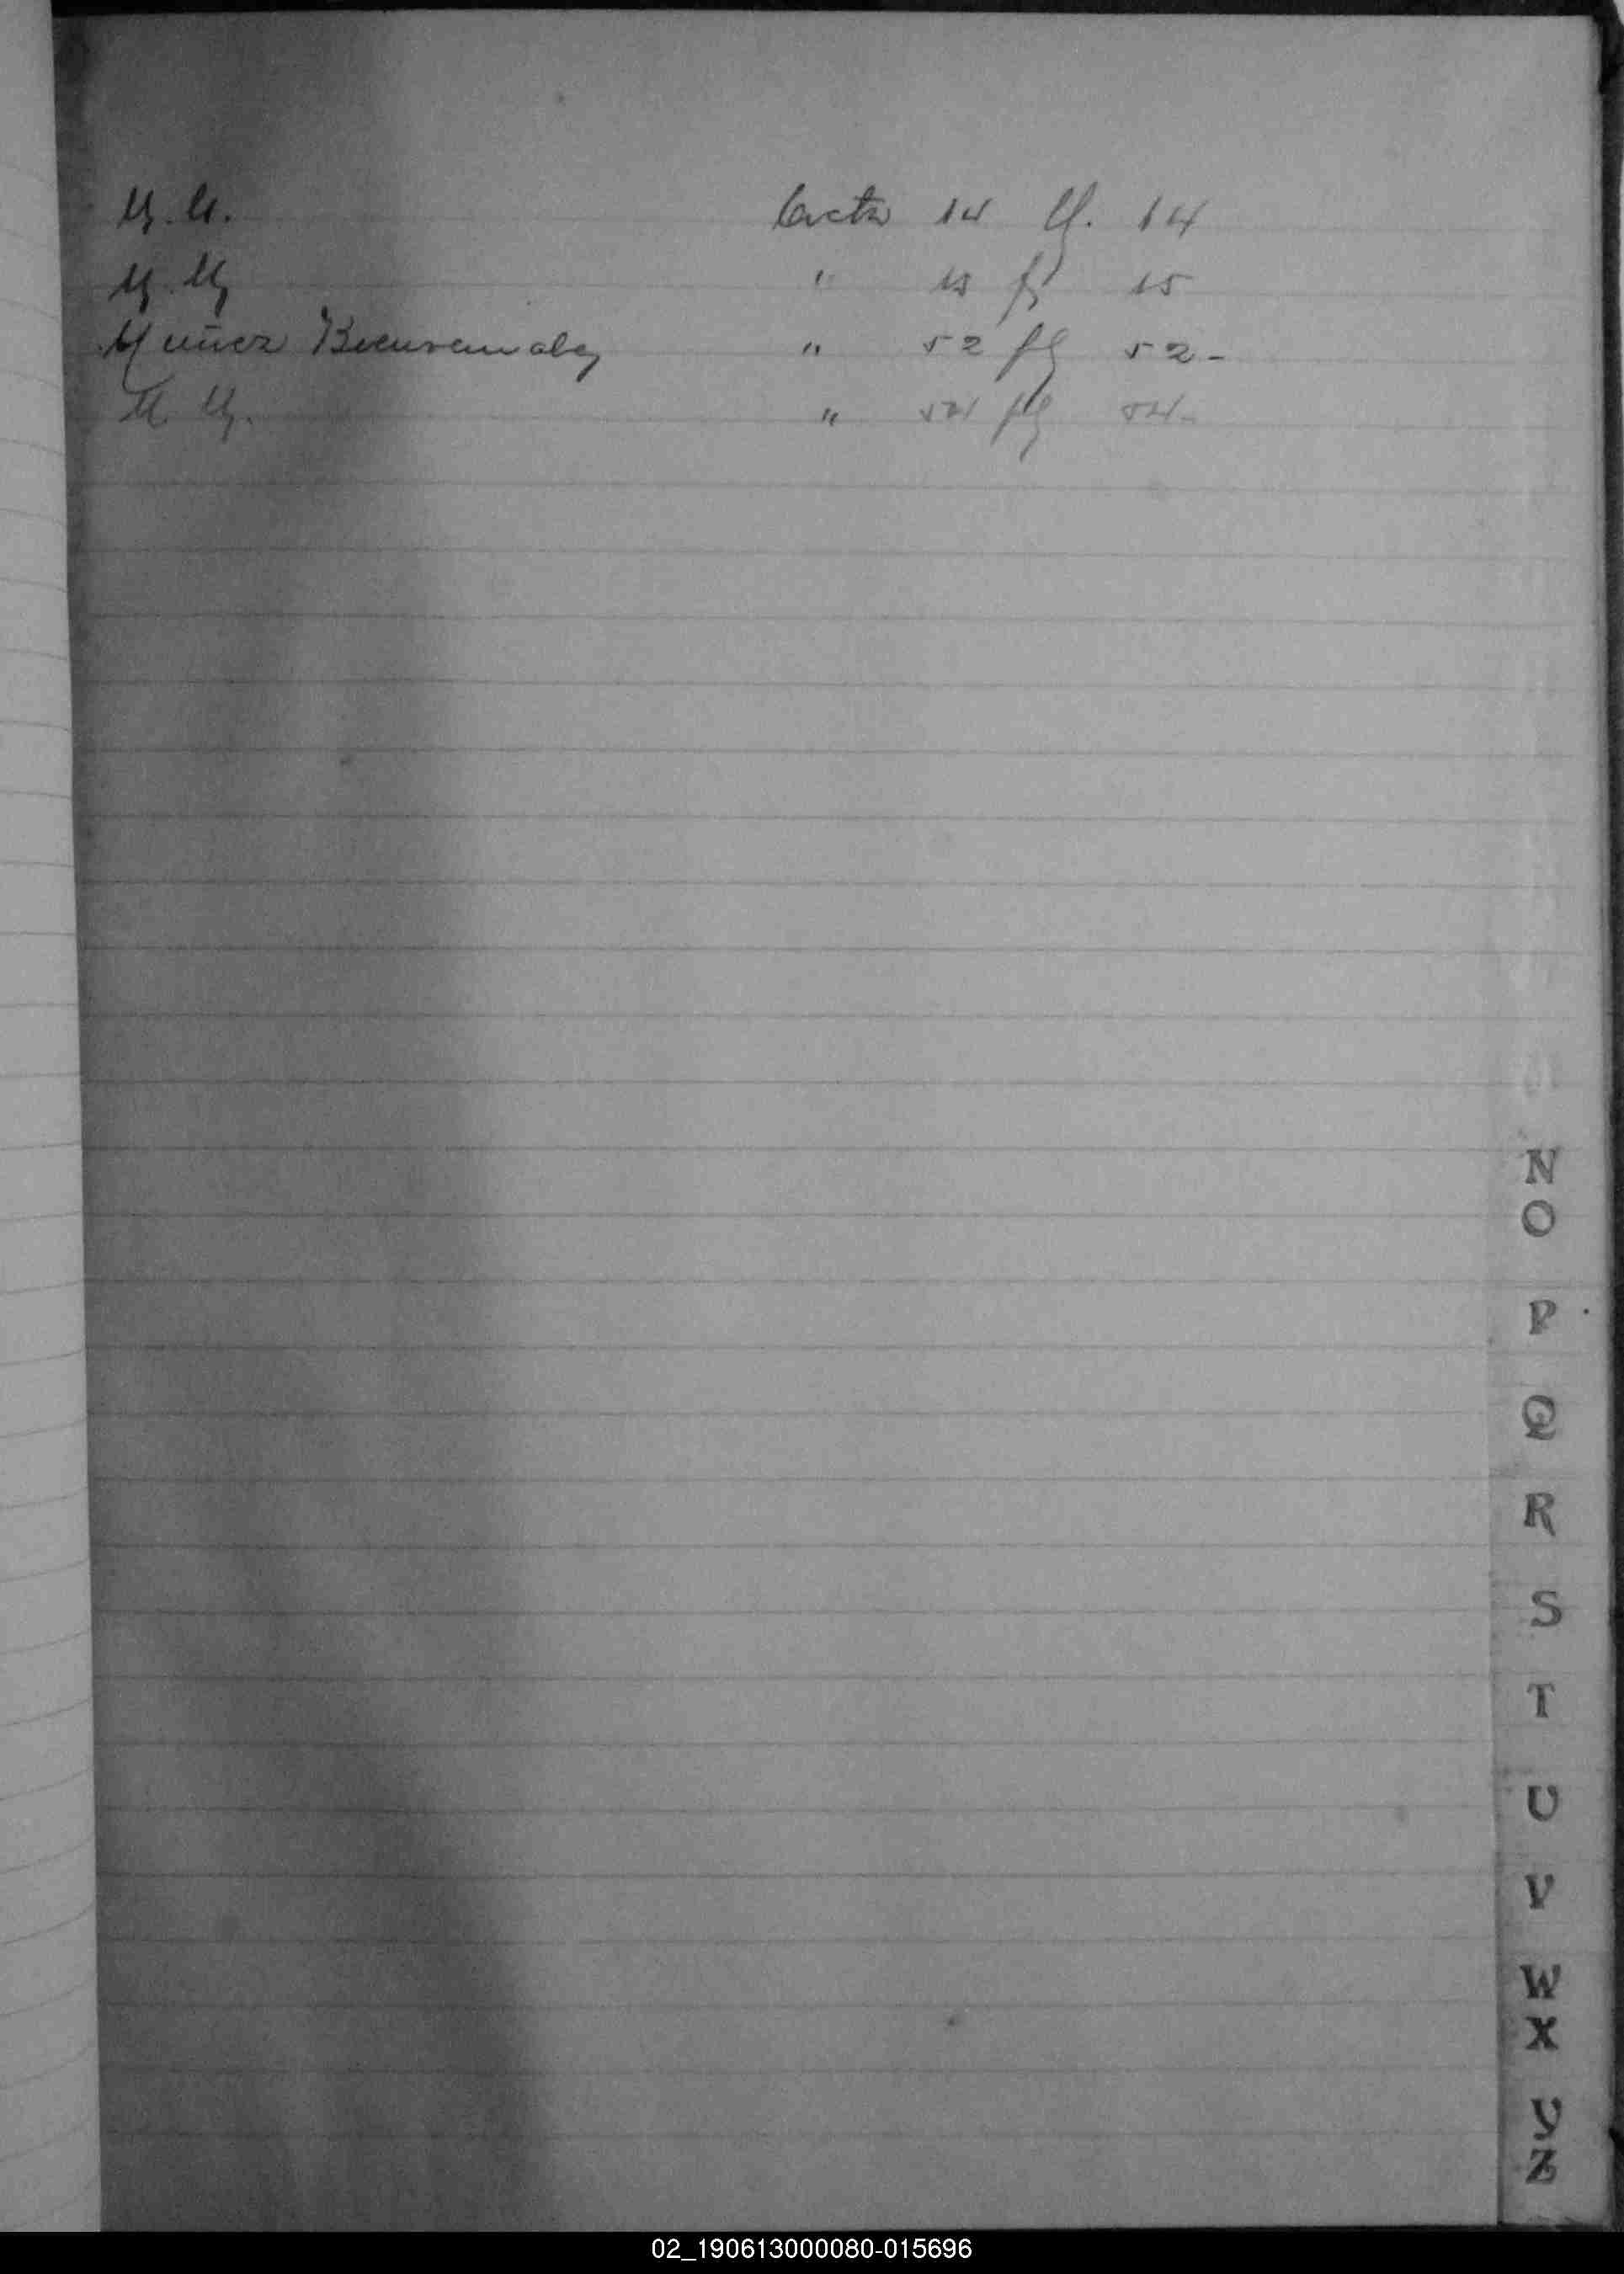 N. N. Acta 14 fj. 14
N. N " 15 fj 15
Nuñez Bienvenida " 52 fj 52-
N. N. " 54 fj 54-
N
O
P
Q
R
S
T
U
V
W
X
Y
Z
02_190613000080-015696